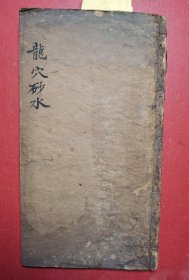 龍穴砂水